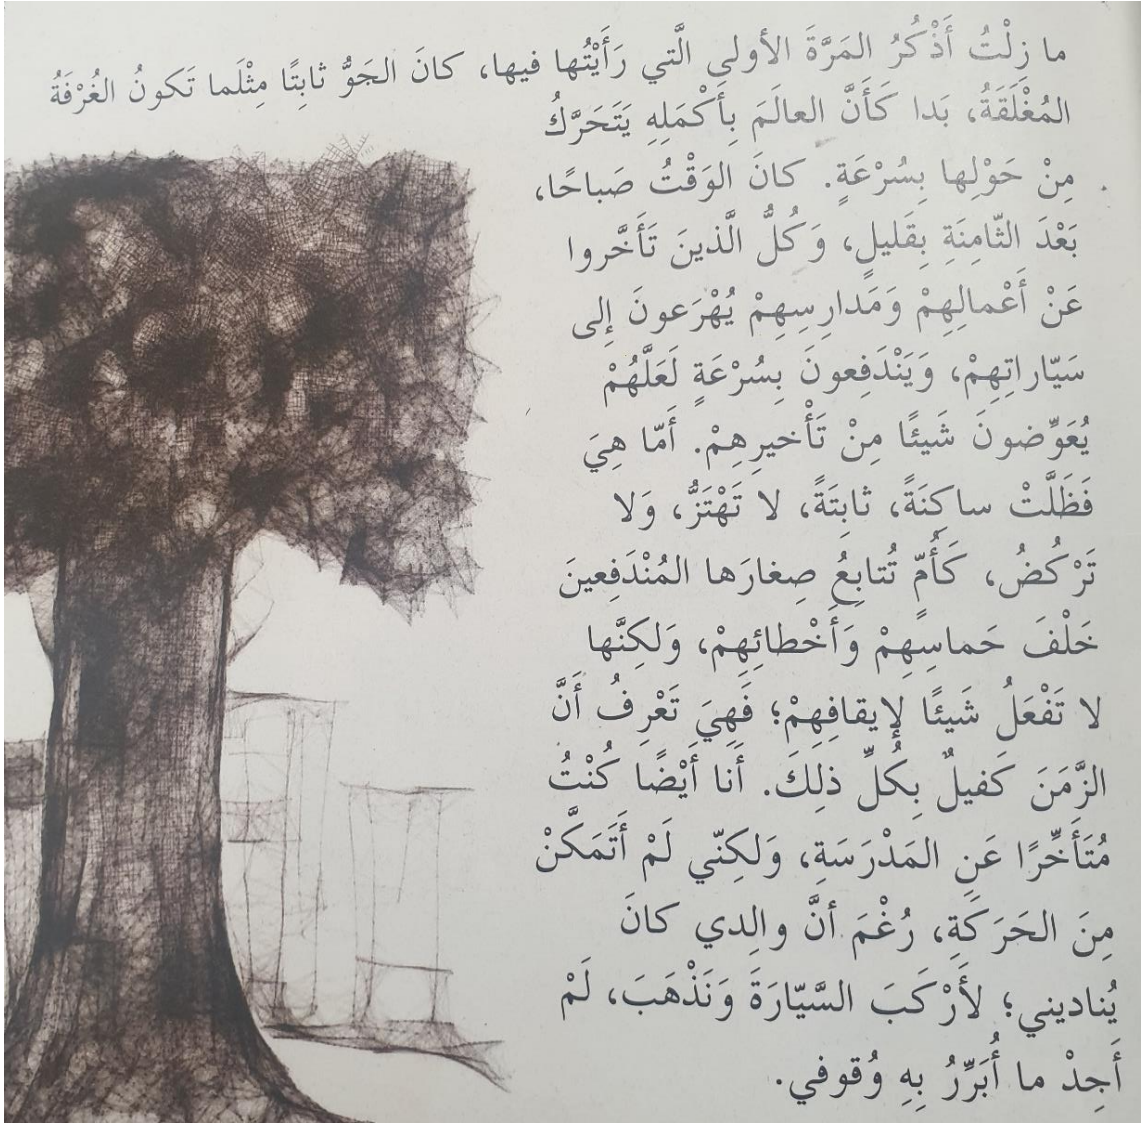 ما زِلْتُ أَذْكُرُ المَرَّةَ الأولى الَّتي رَأَيْتُها فيها، كانَ الجَوُّ ثابِتًا مِثْلَما تَكونُ الغُرْفَةُ
المُغْلَقَةُ، بَدا كَأَنَّ العالَمَ بِأَكْمَلِهِ يَتَحَرَّكُ
مِنْ حَوْلِها بِسُرْعَةٍ. كانَ الوَقْتُ صَباحًا،
بَعْدَ الثّامِنَةِ بِقَليلٍ، وَكُلُّ الَّذينَ تَأَخَّروا
عَنْ أَعْمالِهِمْ وَمَدارِسِهِمْ يُهْرَعونَ إِلى
سَيّاراتِهِمْ، وَيَنْدَفِعونَ بِسُرْعَةٍ لَعَلَّهُمْ
يُعَوِّضونَ شَيْئًا مِنْ تَأْخيرِهِمْ. أَمّا هِيَ
فَظَلَّتْ ساكِنَةً، ثابِتَةً، لا تَهْتَزُّ، وَلا
تَرْكُضُ، كَأُمٍّ تُتابِعُ صِغارَها المُنْدَفِعينَ
خَلْفَ حَماسِهِمْ وَأَخْطائِهِمْ، وَلكِنَّها
لا تَفْعَلُ شَيْئًا لِإيقافِهِمْ؛ فَهِيَ تَعْرِفُ أَنَّ
الزَّمَنَ كَفيلٌ بِكُلِّ ذلِكَ. أَنا أَيْضًا كُنْتُ
مُتَأَخِّرًا عَنِ المَدْرَسَةِ، وَلكِنّي لَمْ أَتَمَكَّنْ
مِنَ الحَرَكَةِ، رُغْمَ أنَّ والِدي كانَ
يُناديني؛ لأَرْكَبَ السَّيّارَةَ وَنَذْهَبَ، لَمْ
أَجِدْ ما أُبَرِّرُ بِهِ وُقوفي.